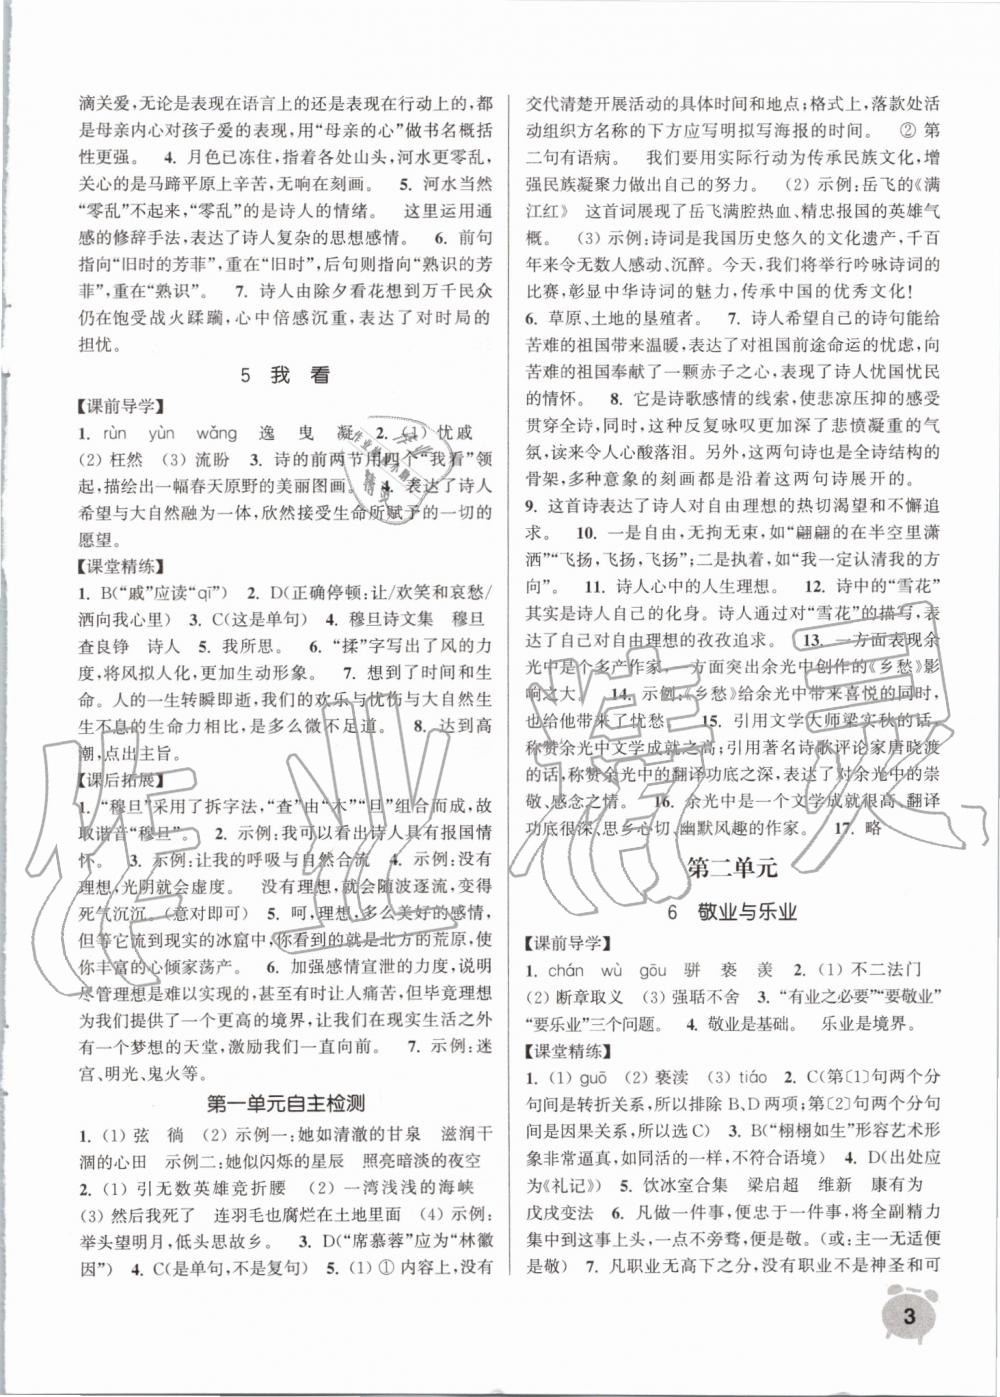 滴关爱,无论是表现在语言上的还是表现在行动上的,都
是母亲内心对孩子爱的表现,用“母亲的心”做书名概括
性更强。 4. 月色已冻住,指着各处山头,河水更零乱,
关心的是马蹄平原上辛苦,无响在刻画。 5. 河水当然
“零乱”不起来,“零乱”的是诗人的情绪。 这里运用通
感的修辞手法,表达了诗人复杂的思想感情。 6. 前句
指向“旧时的芳菲”,重在“旧时”,后句则指向“熟识的芳
菲”,重在“熟识”。 7. 诗人由除夕看花想到万千民众
仍在饱受战火蹂躏,心中倍感沉重,表达了对时局的
担忧。
5 我 看
【课前导学】
1. rùn yùn wǎng 逸 曳 凝 2. (1) 忧戚
(2) 枉然 (3) 流盼 3. 诗的前两节用四个“我看”领
起,描绘出一幅春天原野的美丽图画。 4. 表达了诗人
希望与大自然融为一体,欣然接受生命所赋予的一切的
愿望。
【课堂精练】
1. B(“戚”应读“qī”) 2. D(正确停顿:让/欢笑和哀愁/
洒向我心里) 3. C(这是单句) 4. 穆旦诗文集 穆旦
查良铮 诗人 5. 我所思。 6. “揉”字写出了风的力
度,将风拟人化,更生动形象。 7. 想到了时间和生
命。人的一生转瞬即逝,我们的欢乐与忧伤与大自然生
生不息的生命力相比,是多么微不足道。 8. 达到高
潮,点出主旨。
【课后拓展】
1. “穆旦”采用了拆字法,“查”由“木”“旦”组合而成,故
取谐音“穆旦”。 2. 示例:我可以看出诗人具有报国情
怀。 3. 示例:让我的呼吸与自然合流 4. 示例:没有
理想,光阴就会虚度。 没有理想,就会随波逐流,变得
死气沉沉。(意对即可) 5. 呵,理想,多么美好的感情,
但等它流到现实的冰窟中,你看到的就是北方的荒原,使
你丰富的心倾家荡产。 6. 加强感情宣泄的力度,说明
尽管理想是难以实现的,甚至有时让人痛苦,但毕竟理想
为我们提供了一个更高的境界,让我们在现实生活之外
有一个梦想的天堂,激励我们一直向前。 7. 示例:迷
宫、明光、鬼火等。
第一单元自主检测
1. (1) 弦 徜 (2) 示例一:她如清澈的甘泉 滋润干
涸的心田 示例二:她似闪烁的星辰 照亮暗淡的夜空
2. (1) 引无数英雄竞折腰 (2) 一湾浅浅的海峡
(3) 然后我死了 连羽毛也腐烂在土地里面 (4) 示例:
举头望明月,低头思故乡。 3. D(“席慕蓉”应为“林徽
因”) 4. C(是单句,不是复句) 5. (1) ① 内容上,没有
交代清楚开展活动的具体时间和地点;格式上,落款处活
动组织方名称的下方应写明拟写海报的时间。 ② 第
二句有语病。 我们要用实际行动为传承民族文化,增
强民族凝聚力做出自己的努力。 (2) 示例:岳飞的《满
江红》 这首词展现了岳飞满腔热血、精忠报国的英雄气
概。 (3) 示例:诗词是我国历史悠久的文化遗产,千百
年来令无数人感动、沉醉。今天,我们将举行吟咏诗词的
比赛,彰显中华诗词的魅力,传承中国的优秀文化!
6. 草原、土地的垦殖者。 7. 诗人希望自己的诗句能给
苦难的祖国带来温暖,表达了对祖国前途命运的忧虑,向
苦难的祖国奉献了一颗赤子之心,表达了诗人忧国忧民
的情怀。 8. 它是诗歌感情的线索,使悲凉压抑的感受
贯穿全诗,同时,这种反复咏叹更加深了悲愤凝重的气
氛,读来令人心酸落泪。另外,这两句诗也是全诗结构的
骨架,多种意象的刻画都是沿着这两句诗展开的。
9. 这首诗表达了诗人对自由理想的强烈渴望和不懈追
求。 10. 一是自由,无拘无束,如“翩翩的在半空里潇
洒”“飞扬,飞扬,飞扬”;二是执着,如“我一定认清我的方
向”。 11. 诗人心中的人生理想。 12. 诗中的“雪花”
其实是诗人自己的化身。诗人通过对“雪花”的描写,表
达了自己对自由理想的孜孜追求。 13. 一方面表现余
光中是个多产作家,一方面突出余光中创作的《乡愁》影
响之大。 14. 示例:《乡愁》给余光中带来喜悦的同时,
也给他带来了忧愁。 15. 引用文学大师梁实秋的话,
称赞余光中文学成就之高;引用著名诗歌评论家唐晓渡
的话,称赞余光中的翻译功底之深,表达对余光中的崇
敬、感念之情。 16. 余光中的文学成就很高、翻译
功底很深、思乡心切、幽默风趣的作家。 17. 略
第二单元
6 敬业与乐业
【课前导学】
1. chán wù gōu 骈 亵 羡 2. (1) 不二法门
(2) 断章取义 (3) 强聒不舍 3. “有业之必要”“要敬业”
“要乐业”三个问题。 4. 敬业是基础。 乐业是境界。
【课堂精练】
1. (1) guō (2) 亵渎 (3) tiáo 2. C(第〔1〕句两个分
句间是转折关系,所以排除B、D两项;第〔2〕句两个分句
间是因果关系,所以选C) 3. B(“栩栩如生”形容艺术形
象非常逼真,如同活的一样,不符合语境) 4. D(出处应
为《礼记》) 5. 饮冰室合集 梁启超 维新 康有为
戊戌变法 6. 凡做一件事,便忠于一件事,将全副精力
集中到这事上头,一点不旁骛,便是敬。(或:主一无适便
是敬) 7. 凡职业无高下之分,没有职业不是神圣和可
3